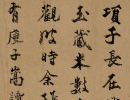 項子長在
玉藏米數
觀時余
有庾子嵩